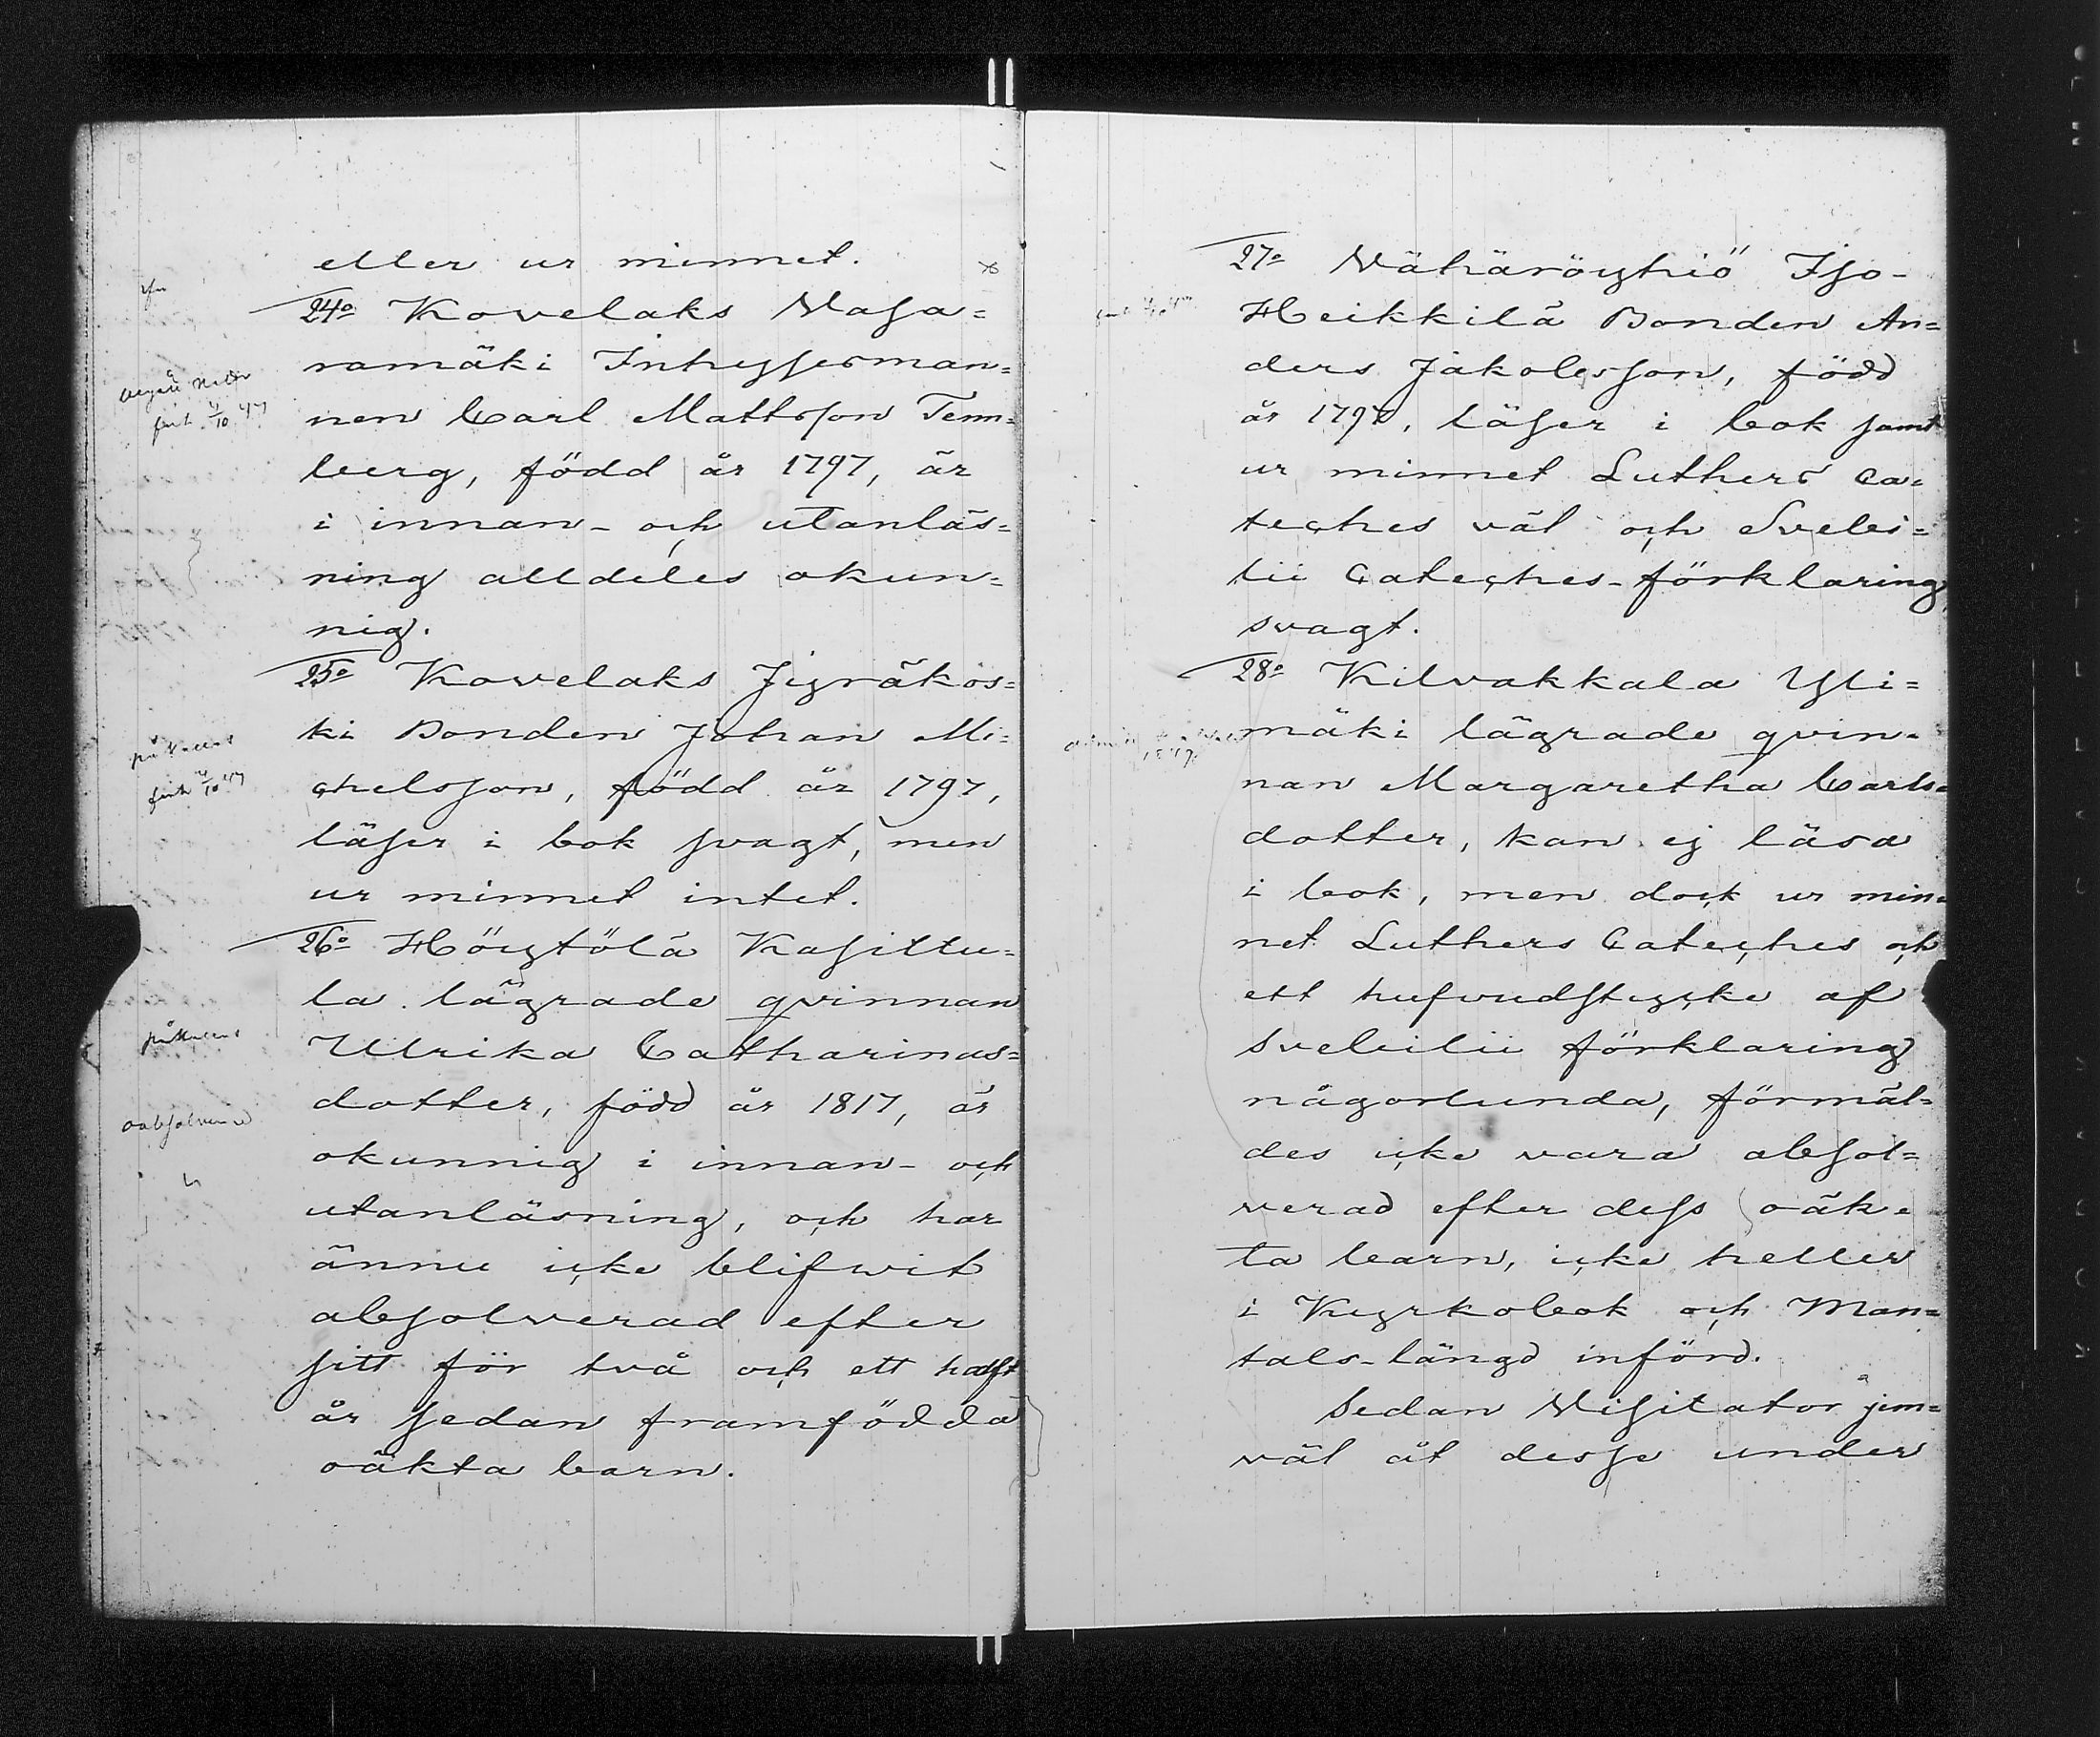 eller ur minnet.
24o Kovelaks Wasa=
ramäki Inhysesman=
nen Carl Mattsson Tenn=
berg, född år 1797, är
i innan- och utanläs=
ning alldeles okun=
nig.
25o Kovelaks Jyräkös=
ki Bonden Johan Mi=
chelsson, född år 1797,
läser i bok svagt, men
ur minnet intet.
26o Höytölä Kasittu=
la lägrade qvinnan
Ulrika Catharinas=
dotter, född år 1817, är
okunnig i innan- och
utanläsning, och har
ännu icke blifwit
absolverad efter
sitt för två och ett halft
år sedan framfödda
oäkta barn.
27o Wähäröyhiö Iso-
Heikkilä Bonden An=
ders Jakobsson, född
år 1797, läser i bok samt
ur minnet Luthers Ca=
teches väl och Svebi=
lii Cateches-förklaring
svagt.
28o Kilvakkala Yli=
mäki lägrade qvin=
nan Margaretha Carls=
dotter, kan ej läsa
i bok, men dock ur min=
net Luthers Cateches och
ett hufvudstycke af
Svebilii förklaring
någorlunda, förmäl=
des icke vara absol=
verad efter dess oäk=
ta barn, icke heller
i Kyrkobok och Man=
tals-längd införd.
Sedan Visitator jem=
väl åt desse under